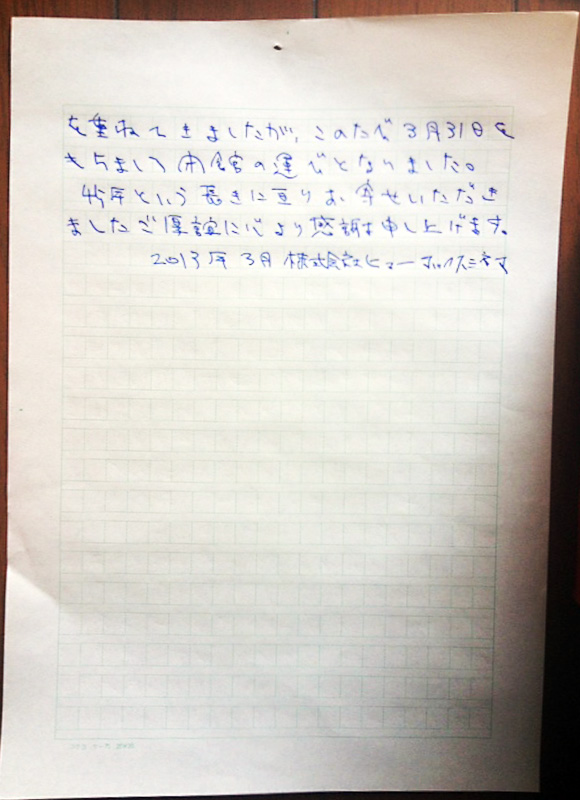 を重ねてきましたが、このたび3月31日を
もちまして閉館の運びとなりました。
45年という長きに亘りお寄せいただき
ましたご厚誼に心より感謝申し上げます。
2013年3月 株式会社ヒューマックスシネマ